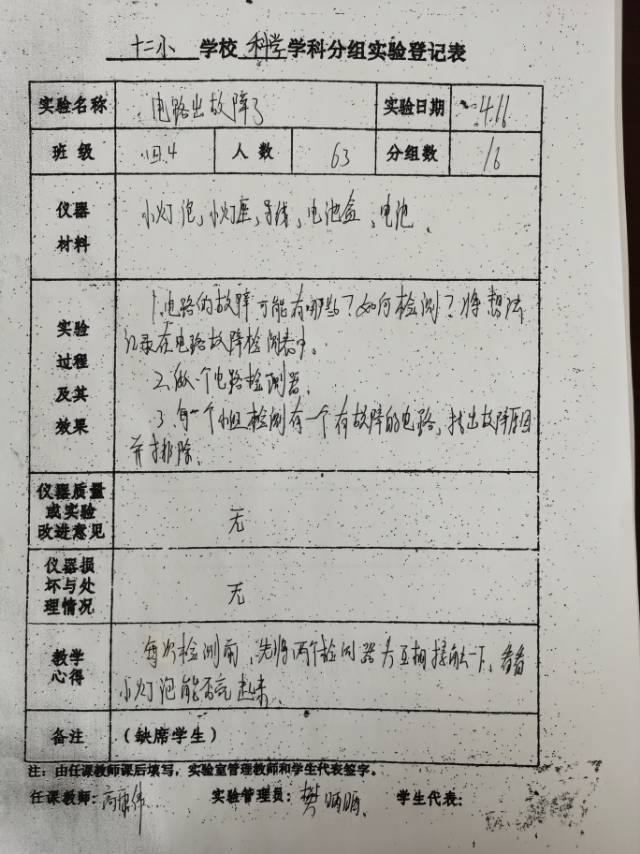 十二小 学校 科学 学科分组实验登记表
实验名称 电路出故障了 实验日期 4.11
班级 四.4 人数 63 分组数 16
仪器材料 小灯泡,小灯座,导线,电池盒,电池.
实验过程及其效果 1.电路的故障可能有哪些?如何检测?将想法
记录在电路故障检测表中。
2.做一个电路检测器.
3.每一个小组检测有一个有故障的电路,找出故障原因
并排除.
仪器质量或实验改进意见 无
仪器损坏与处理情况 无
教学心得 每次检测前,先将两个检测器头互相接触一下,看看
小灯泡能否亮起来.
备注 (缺席学生)
注:由任课教师课后填写,实验室管理教师和学生代表签字。
任课教师: 实验管理员:樊 学生代表: